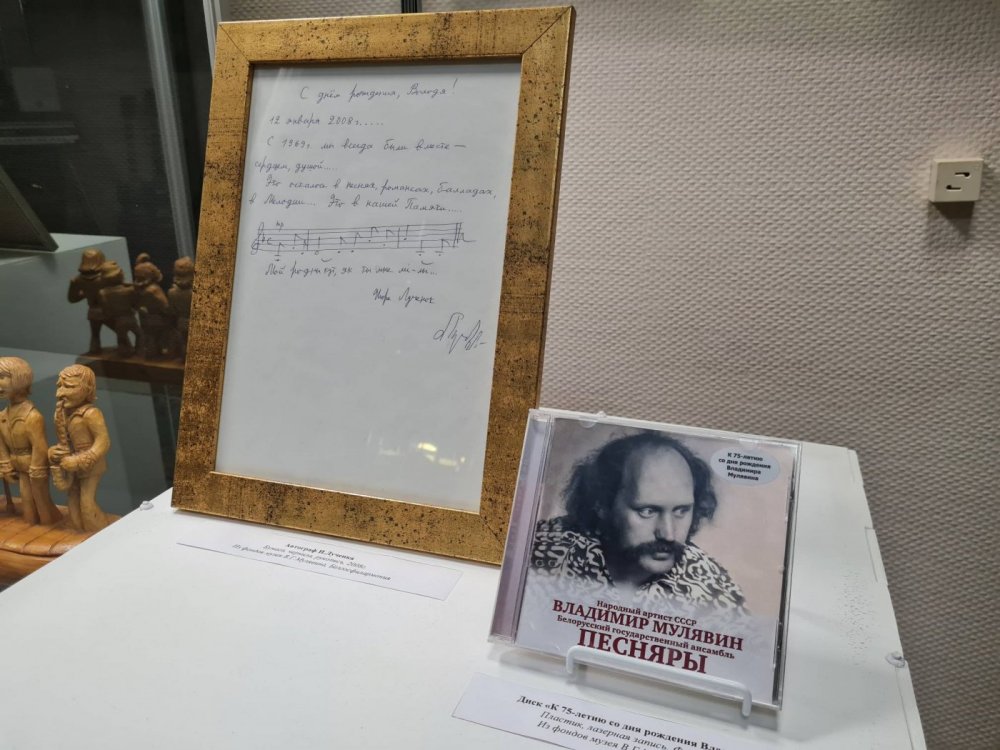 С днём рождения, Володя!
12 января 2008 г.....
С 1969 г. мы всегда были вместе —
сердцем, душой....
Это осталось в песнях, романсах, балладах,
в Мелодии... Это в нашей Памяти.....
mp
Мой родны кут, як ты мне мі-лы...
Игорь Лученок
Автограф И. Лученка
Бумага, чернила, рукопись. 2008г.
Из фондов музея В.Г. Мулявина, Белгосфилармония
К 75-летию
со дня рождения
Владимира
Мулявина
Народный артист СССР
ВЛАДИМИР МУЛЯВИН
Белорусский государственный ансамбль
ПЕСНЯРЫ
Диск «К 75-летию со дня рождения
Пластик, лазерная запись.
Из фондов музея В.Г.